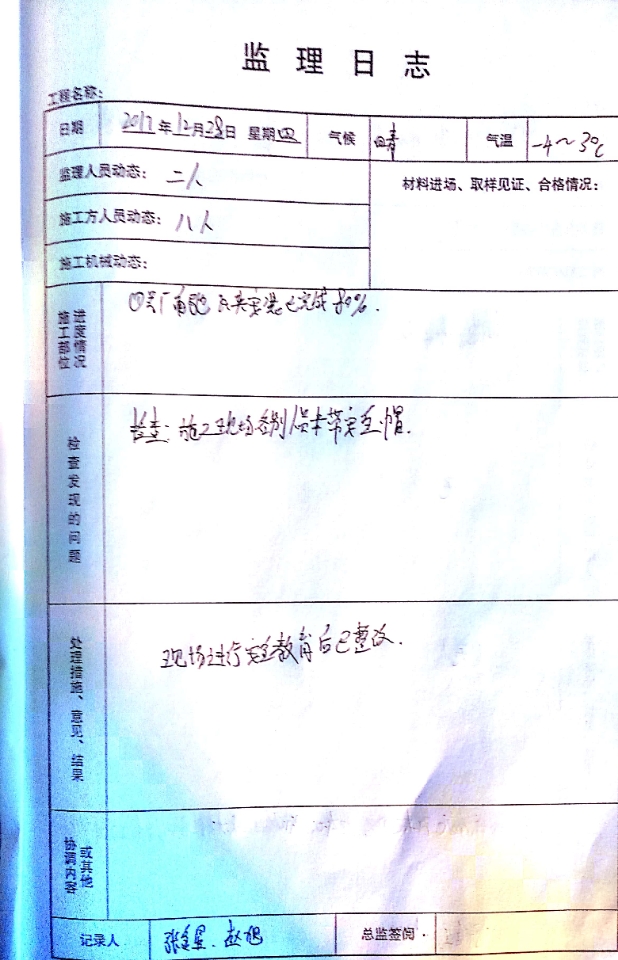 监理日志
工程名称：
日期 2017年12月28日 星期四 气候 晴 气温 -4～3℃
监理人员动态： 二人
材料进场、取样见证、合格情况：
施工方人员动态： 八人
施工机械动态：
施工部位进度情况
安装已完成80%.
检查发现的问题
检查：施工现场各别人员未带安全帽.
处理措施、意见、结果
现场进行安全教育后已整改.
协调内容或其他
记录人 赵旭 总监签阅